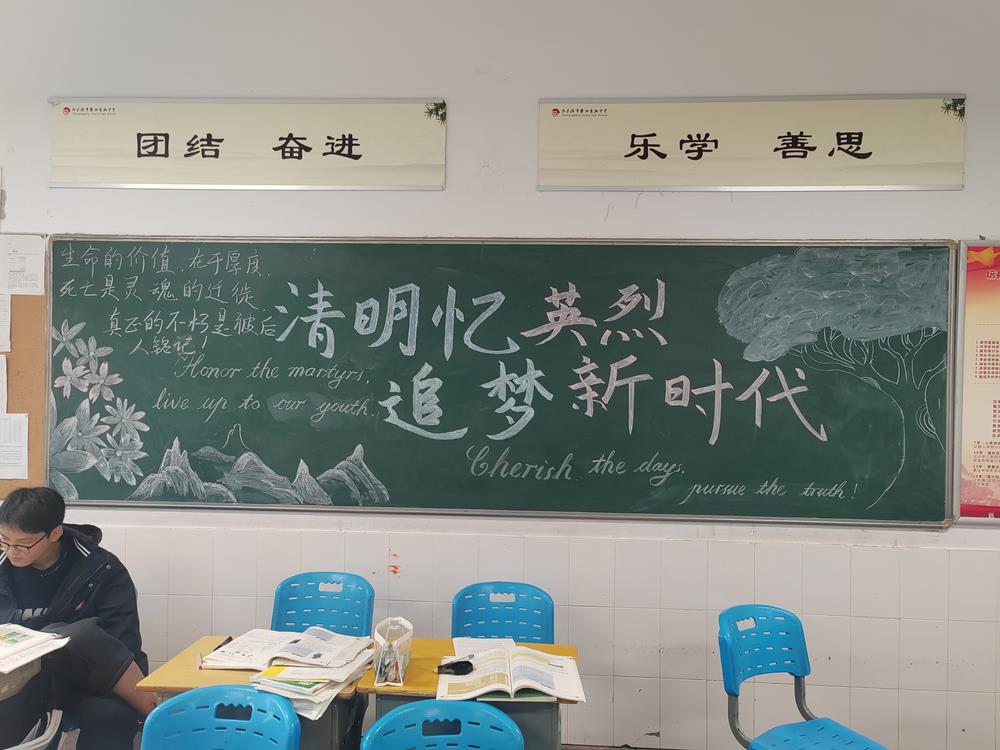 团结 奋进
乐学 善思
生命的价值，在于厚度，
死亡是灵魂的迁徙，
真正的不朽是被后
人铭记！
清明忆英烈
追梦新时代
Honor the martyrs,
live up to our youth.
Cherish the days,
pursue the truth!